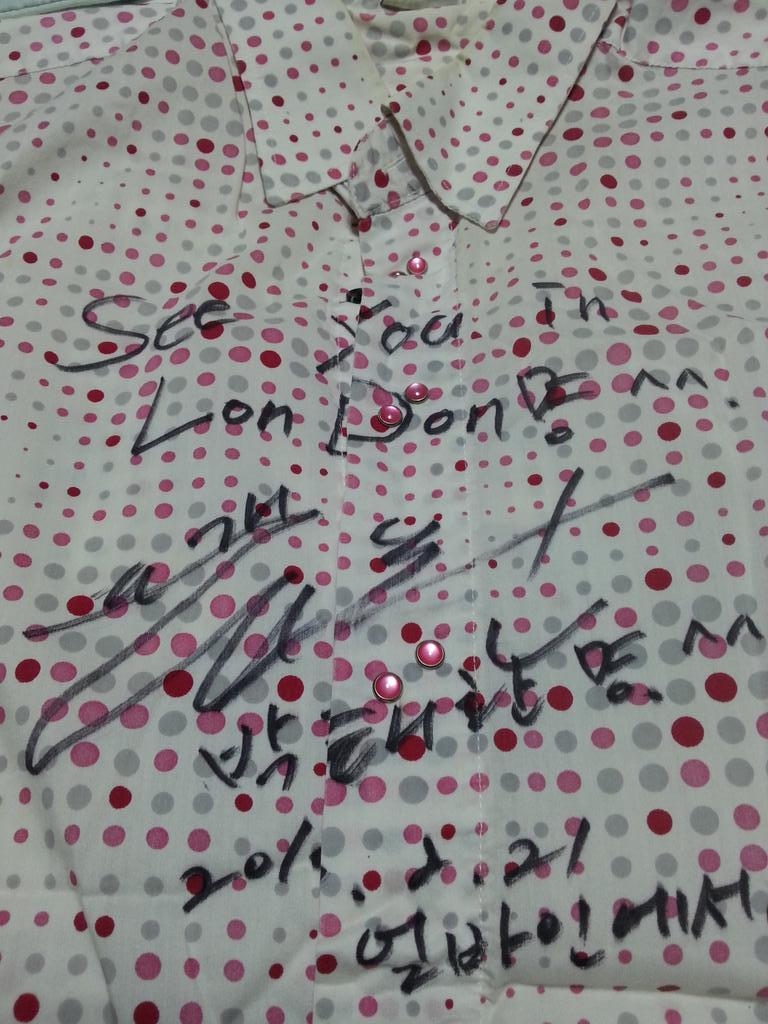 See You In
LonDon 뿅 ^^.
박태환 뿅 ^^
201 . 2. 21
얼바인에서